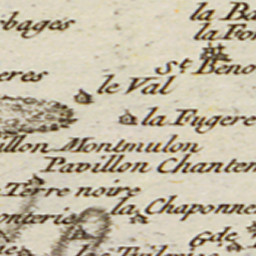 rbages
la Ba
la Fo
St Beno
eres
le Val
la Fugere
illon Montmulon
Pavillon Chanten
Terre noire
la Chaponne
onterie
6 de
les Tuileries